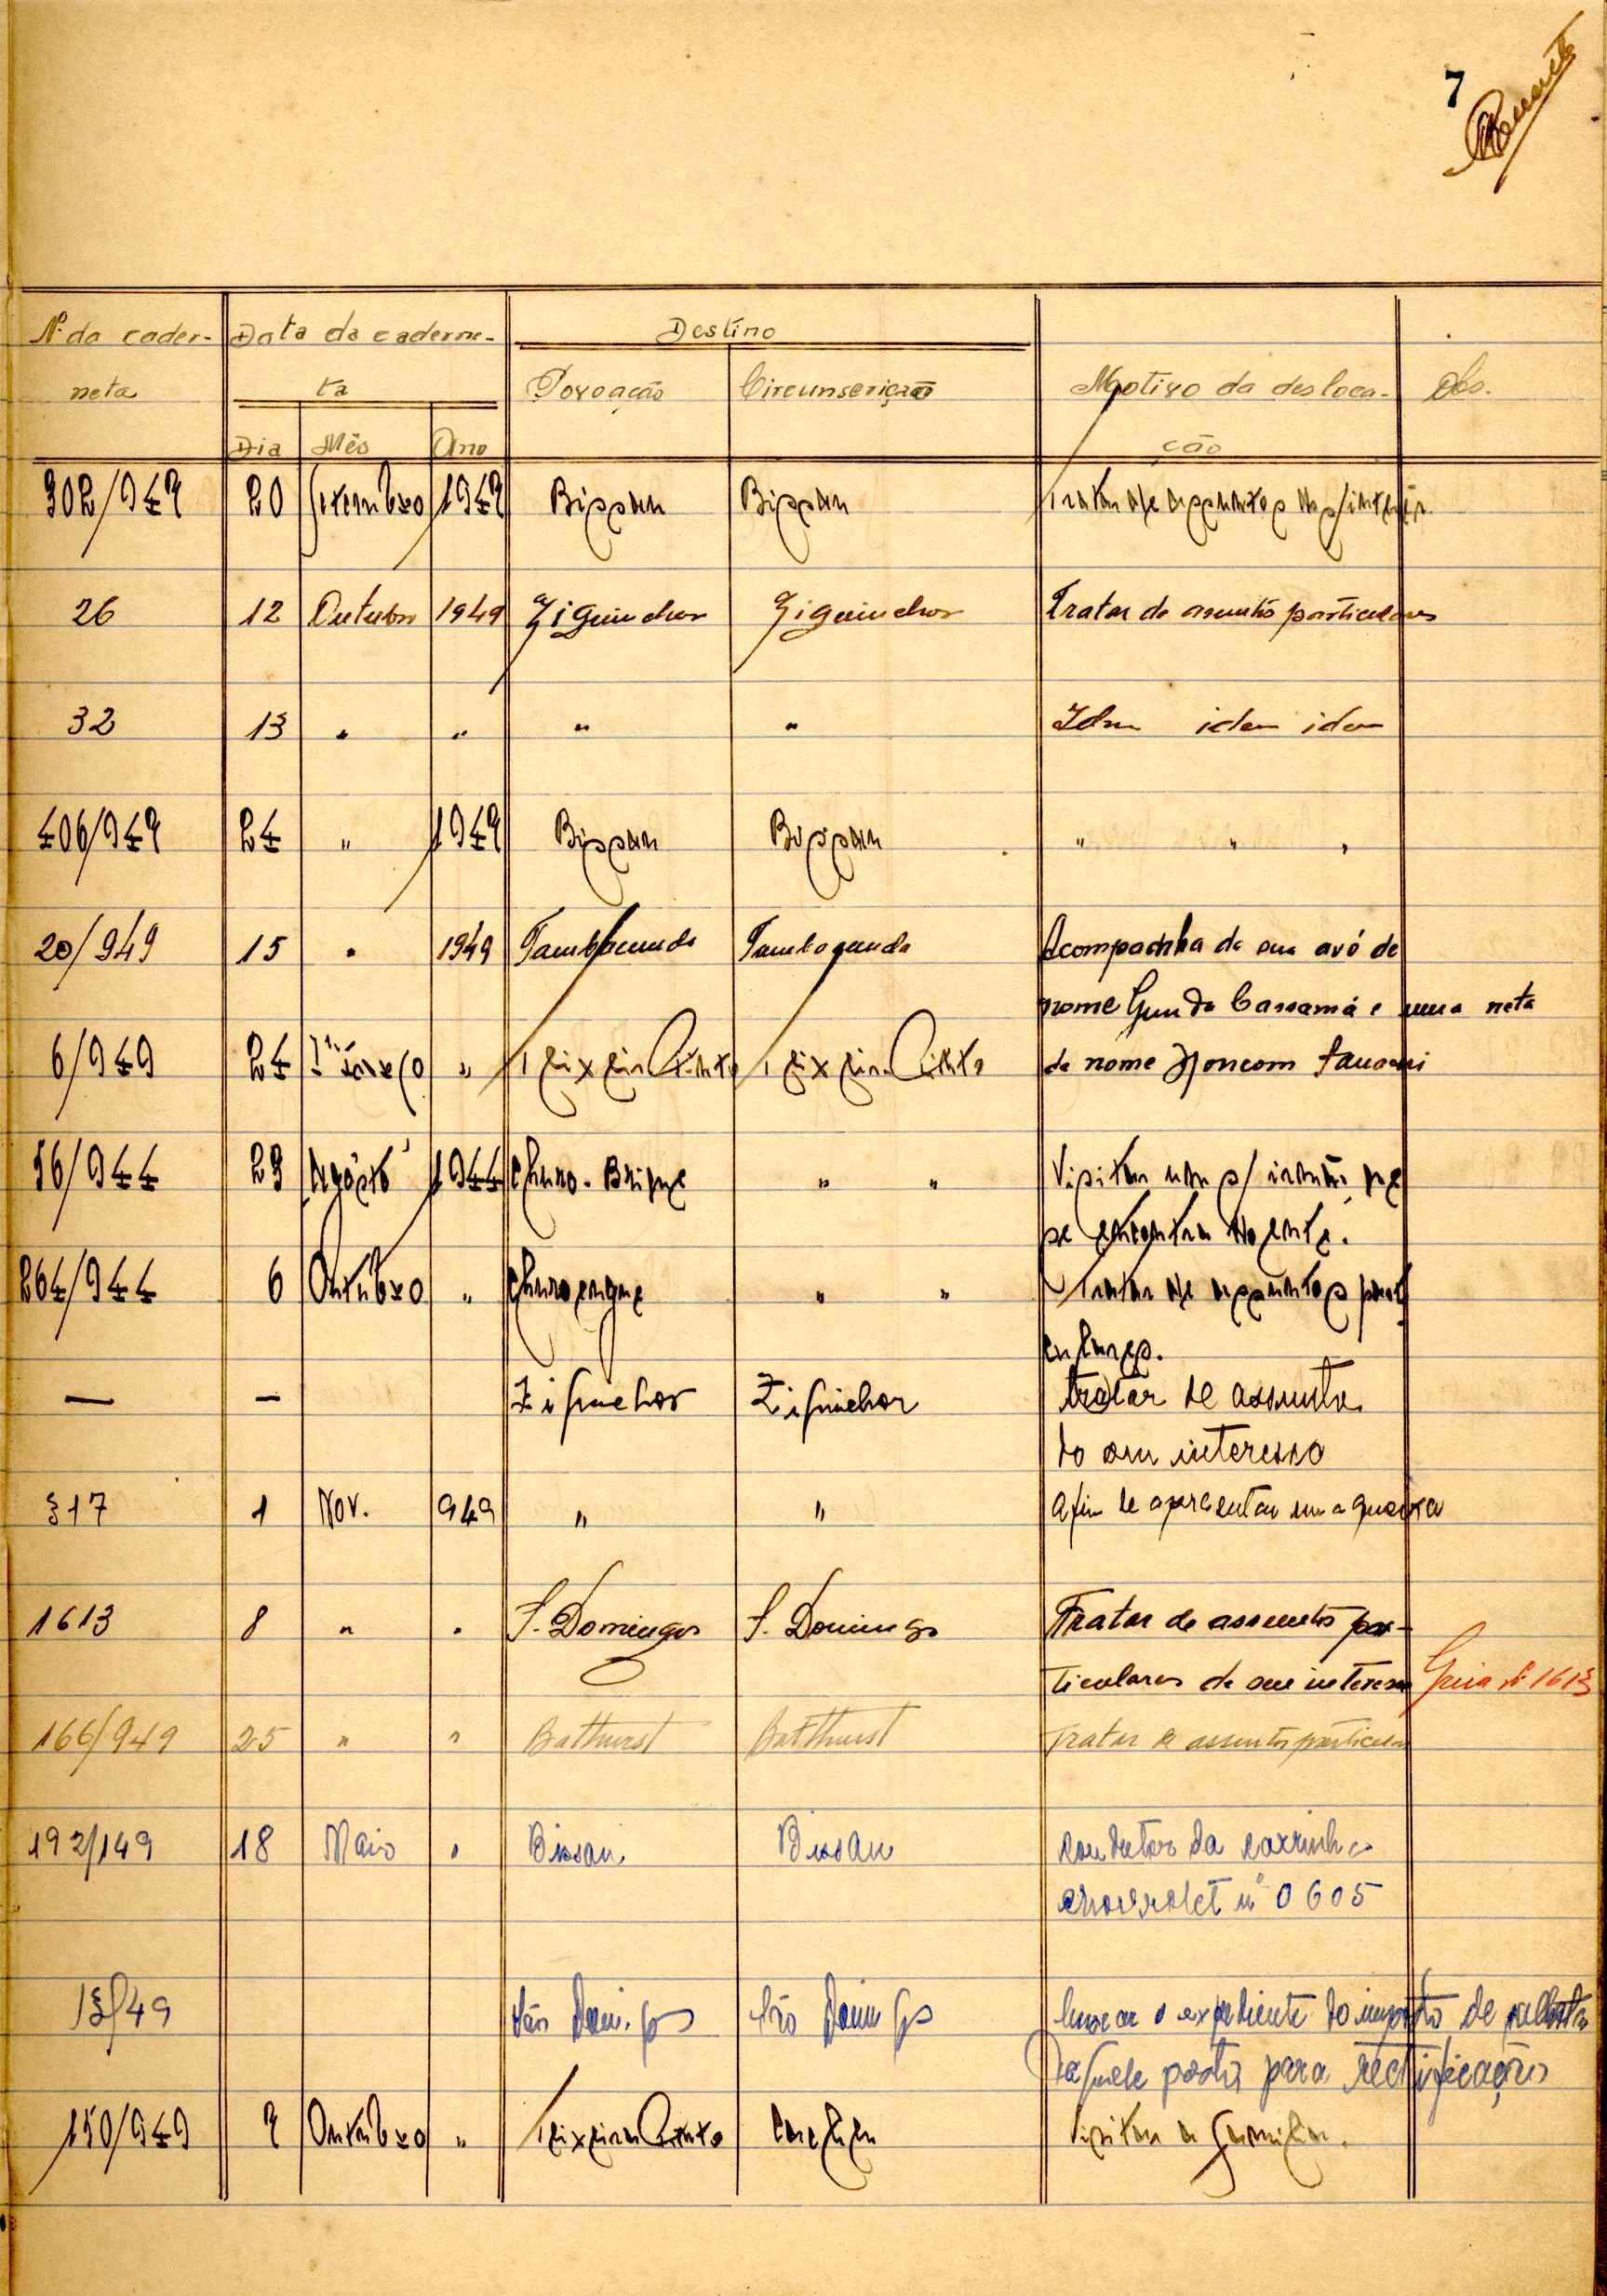 7
Nº da cader- Data da caderne- Destino
neta ta Povoação Circunscrição Motivo da desloca- Obs.
Dia Mês Ano ção
302/949 20 Setembro 1949 Bissau Bissau Tratar de assuntos de s/
26 12 Outubro 1949 Ziguinchor Ziguinchor Tratar de assuntos particulares
32 13 " " " " Idem idem idem
406/949 24 " 1949 Bissau Bissau " " "
20/949 15 " 1949 Tambacunda Tambacunda Acompanha de sua avó de
nome Gunda Cassamá e uma neta
6/949 24 " Teixeira Pinto Teixeira Pinto de nome
56/944 29 Agôsto 1944 " " Visitar um s/ irmão que
se encontra doente.
264/944 6 Outubro " " " Tratar de assuntos parti
culares.
— — Ziguinchor Ziguinchor tratar de assuntos
do seu interesse
317 1 Nov. 949 " " afim de apresentar uma queixa
1613 8 " " S. Domingos S. Domingos Tratar de assuntos par-
ticulares de seu interesse Guia nº 1613
166/949 25 " " Bathurst Batthurst Tratar de assuntos particular
192/149 18 Maio " Bissau Bissau condutor da carrinha
chovrolet nº 0605
13/49 São Domingos São Domingos buscar o expediente do imposto de palhota
daquele posto para rectificação
150/949 9 Outubro " Teixeira Pinto Visitar a familia.